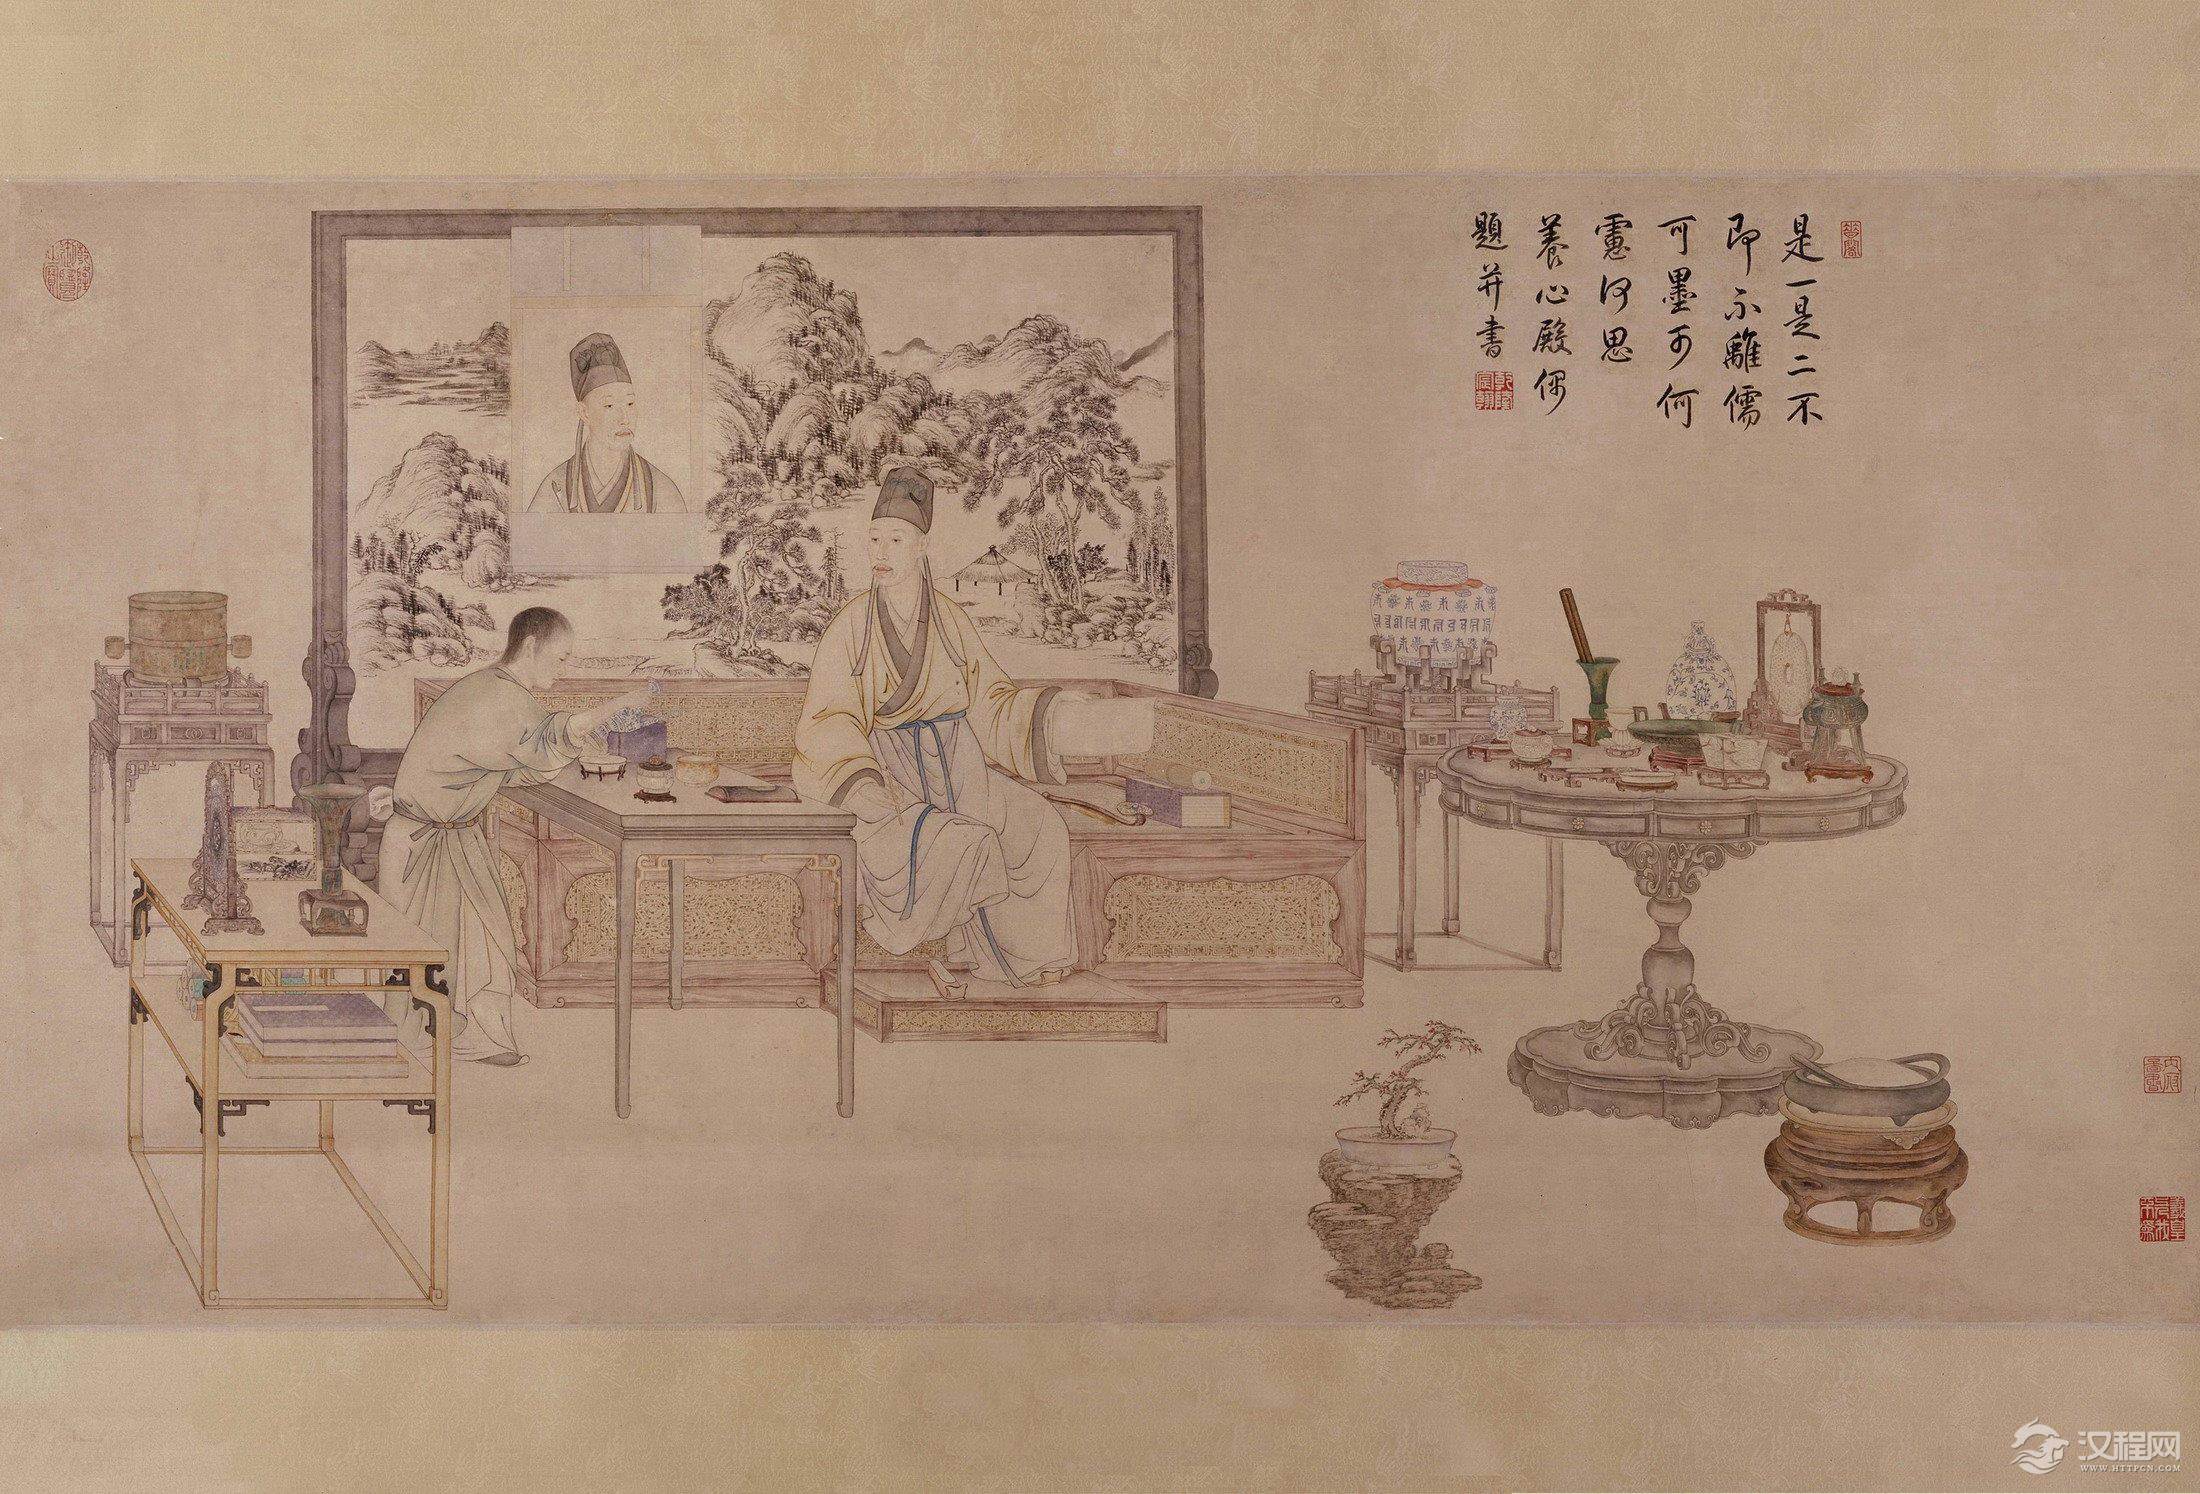 是一是二不
即不離儒
可墨可何
慮何思
養心殿偶
題并書
乾隆宸翰
汉程网
WWW.HTTPCN.COM